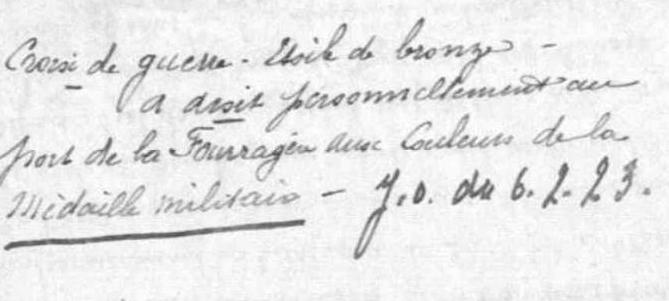 Croix de guerre - Etoile de bronze -
a droit personnellement au
port de la Fourragère aux Couleurs de la
Médaille militaire - J.O. du 6.2.23.